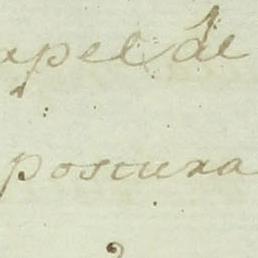 apel de
poscura